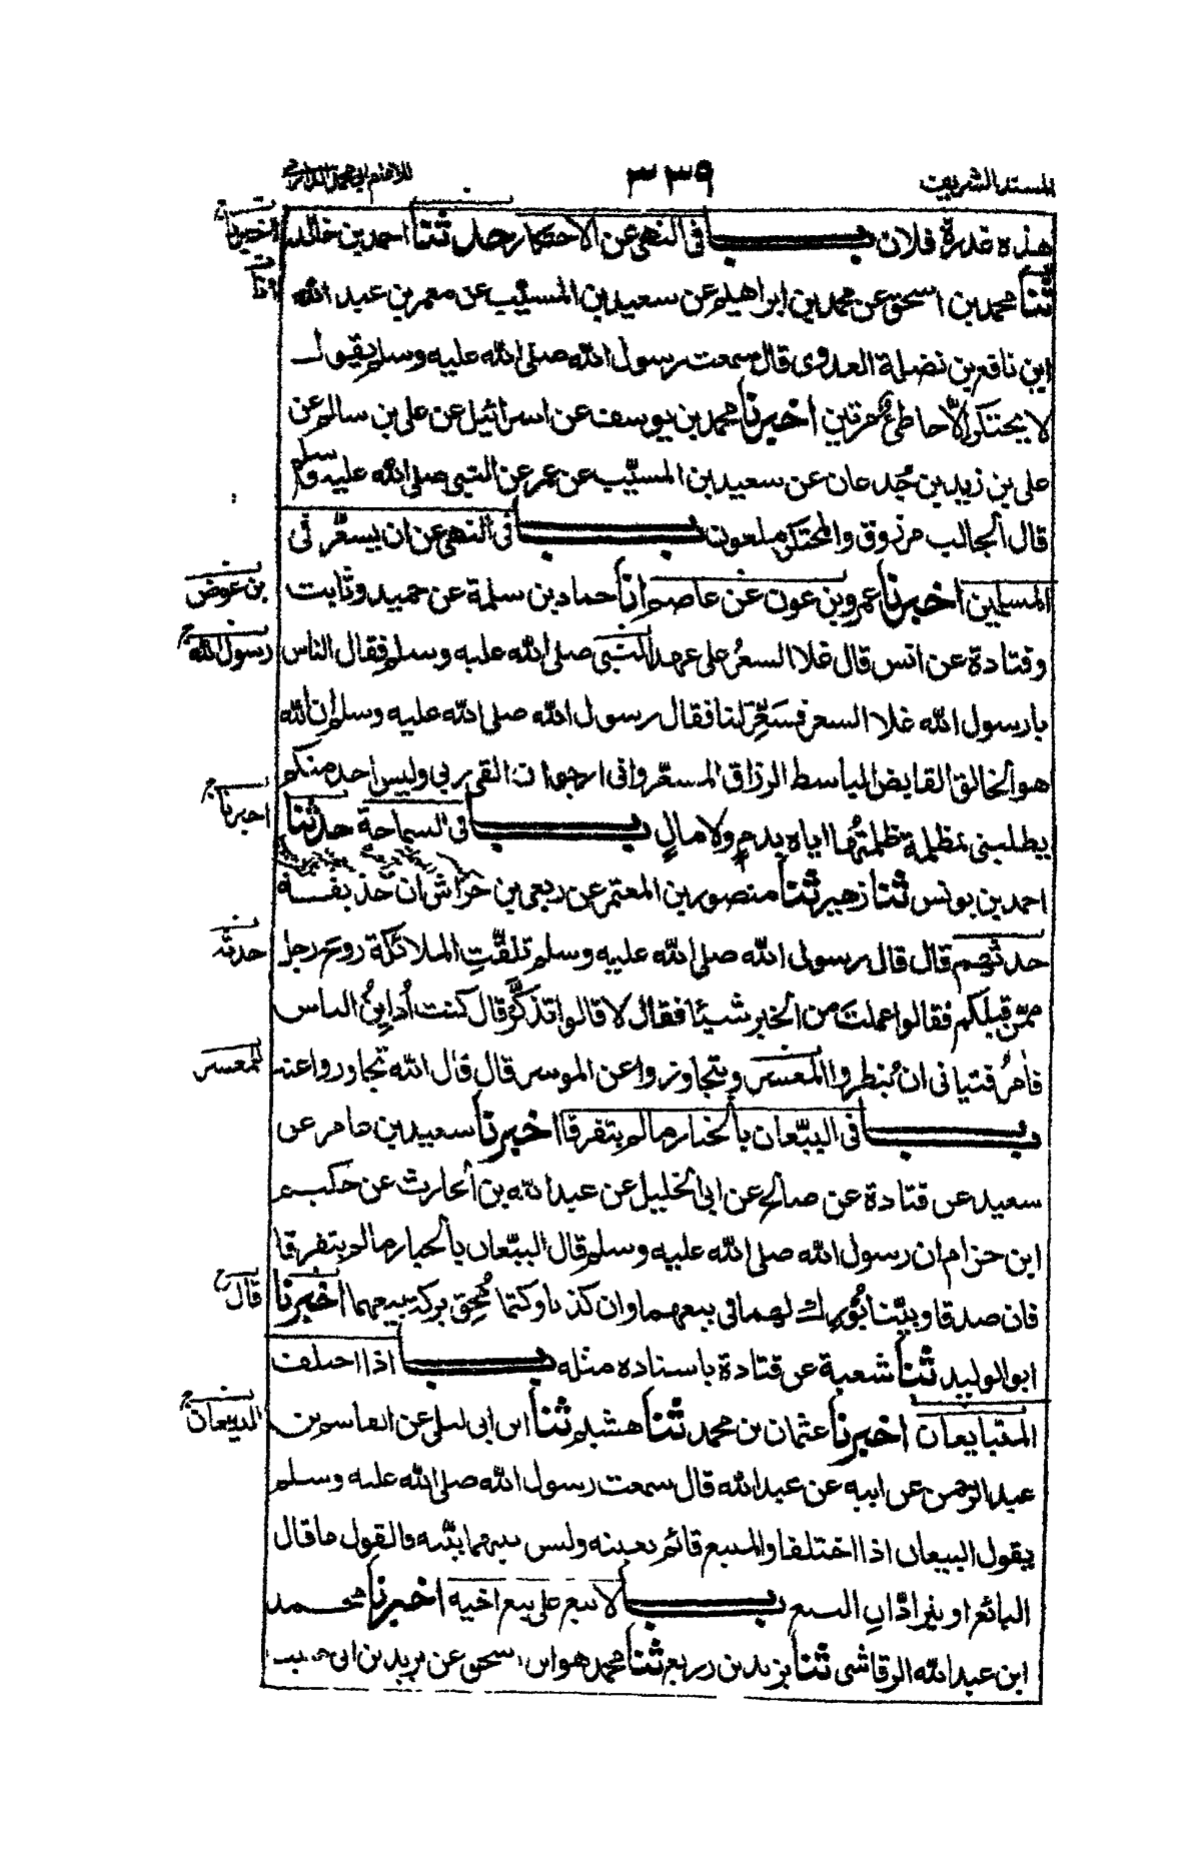 المسند الشريف ٣٣٩ للامام ابي محمد الدارمي
هذه غدرة فلان باب في النهى عن الاحتكار حدثنا احمد بن خالد
ثنا محمد بن اسحق عن محمد بن ابراهيم عن سعيد بن المسيّب عن معمر بن عبد الله
ابن نافع بن نضلة العدوى قال سمعت رسول الله صلى الله عليه وسلم يقول
لا يحتكر الّا خاطئ مرتين اخبرنا محمد بن يوسف عن اسرائيل عن على بن سالم عن
على بن زيد بن جُدعان عن سعيد بن المسيّب عن عمر عن النبى صلى الله عليه وسلم
قال الجالب مرزوق والمحتكر ملعون باب في النهى عن ان يسعّر في
المسلمين اخبرنا عمرو بن عون عن عاصم انا حماد بن سلمة عن حميد وثابت
وقتادة عن انس قال غلا السعرُ على عهد النبى صلى الله عليه وسلم فقال الناس
يا رسول الله غلا السعر فسَعِّر لنا فقال رسول الله صلى الله عليه وسلم ان الله
هو الخالق القابض الباسط الرزاق المسعّر وانى ارجو ان القى ربي وليس احد منكم
يطلبنى بمظلمة ظلمتُها اياه بدمٍ ولا مالٍ باب في السماحة حدثنا
احمد بن يونس ثنا زهير ثنا منصور بن المعتمر عن ربعى بن حراش ان حذيفة
حدثهم قال قال رسول الله صلى الله عليه وسلم تلقّتِ الملائكة روح رجل
ممّن قبلكم فقالوا عملتَ من الخير شيئا فقال لا قالوا تذكَّر قال كنت أُداينُ الناس
فآمرُ فتيانى ان يُنظروا المعسر ويتجاوزوا عن الموسر قال قال الله تجاوزوا عنه
باب في البيّعان بالخيار ما لم يتفرقا اخبرنا سعيد بن عامر عن
سعيد عن قتادة عن صالح عن ابى الخليل عن عبد الله بن الحارث عن حكيم
ابن حزام ان رسول الله صلى الله عليه وسلم قال البيّعان بالخيار ما لم يتفرقا
فان صدقا وبيّنا بُورِك لهما فى بيعهما وان كذبا وكتما مُحِق بركة بيعهما اخبرنا
ابو الوليد ثنا شعبة عن قتادة باسناده مثله باب اذا اختلف
المتبايعان اخبرنا عثمان بن محمد ثنا هشيم ثنا ابن ابى ليلى عن القاسم بن
عبد الرحمن عن ابيه عن عبد الله قال سمعت رسول الله صلى الله عليه وسلم
يقول البيعان اذا اختلفا والمبيع قائم بعينه وليس بينهما بيّنه فالقول ما قال
البائع او يترادّان البيع باب لا يبيع على بيع اخيه اخبرنا محمد
ابن عبد الله الرقاشى ثنا يزيد بن زريع ثنا محمد هو ابن اسحق عن يزيد بن ابى حبيب
اخبرنا
انا
بن عوض
رسول الله
اخبرنا
حدثه
للمعسر
قال
البيعان